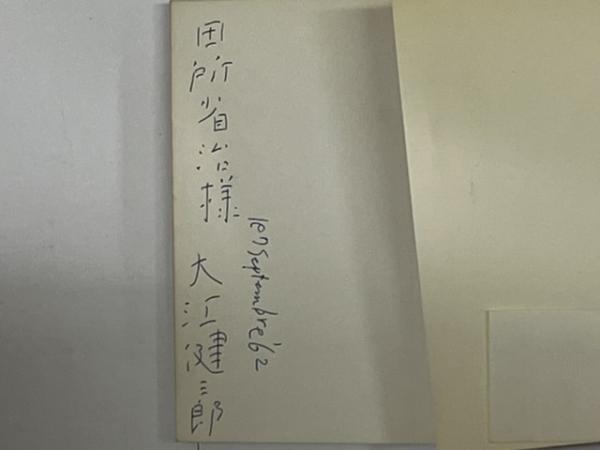 田所省治様 大江健三郎
le 7 Septembre '62